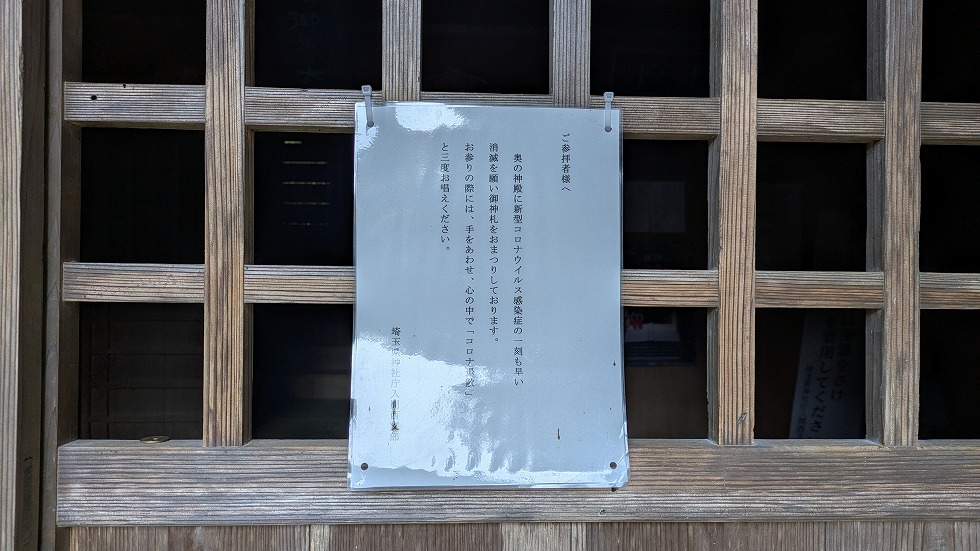 ご参拝者様へ
奥の神殿に新型コロナウイルス感染症の一刻も早い
消滅を願い御神札をおまつりしております。
お参りの際には、手をあわせ、心の中で「コロナ退散」
と三度お唱えください。
埼玉県神社庁入間西支部